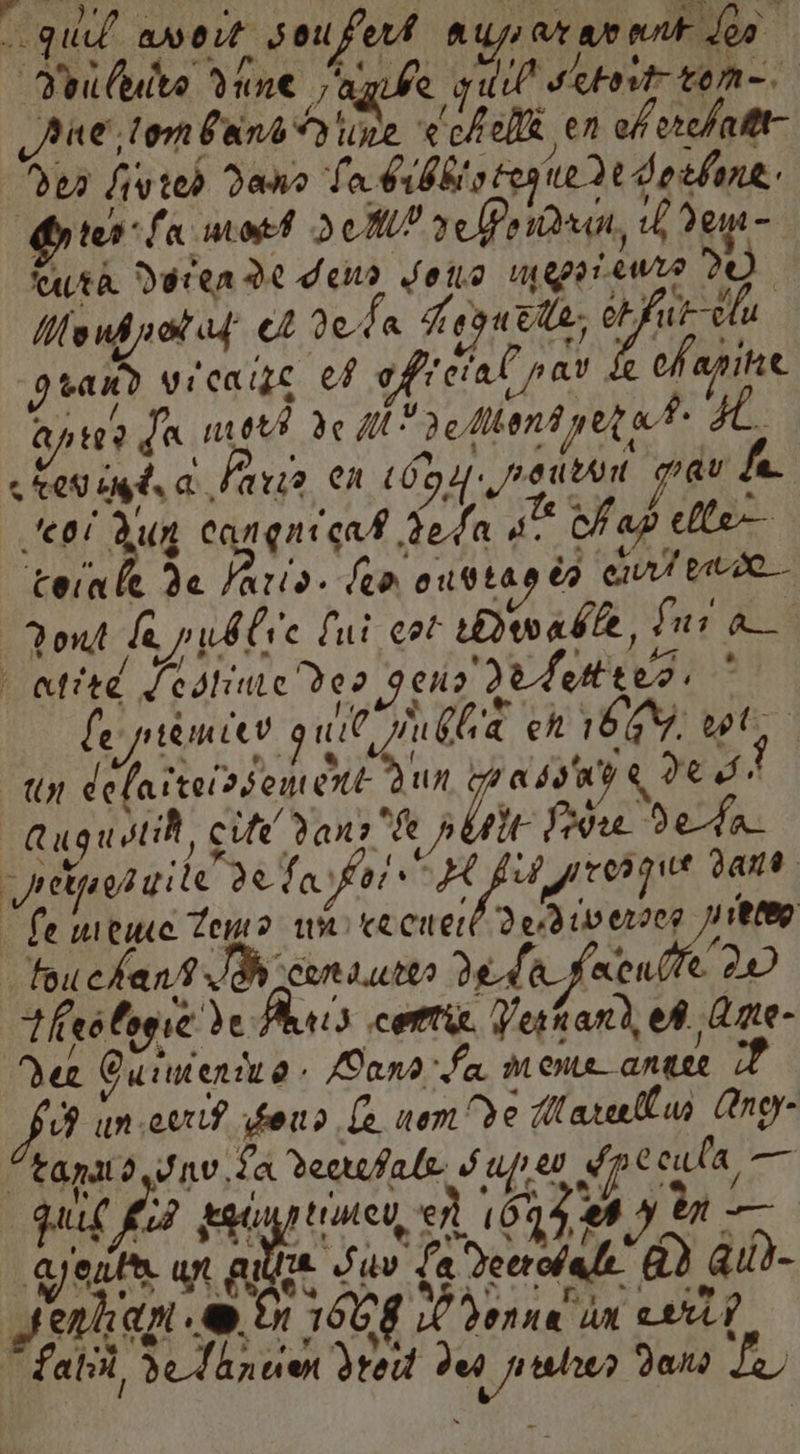 quil avoit soufert auparavant les
douleurs dune jambe quil setoit rom-
pue tombant dune echelle en cherchant
des livres dans la biblioteque de sorbone.
apres la mort de Mr de Gondrin, il dem-
eura doien de sens sous messieurs de
Montpesat et de la Hoguette, et fut elu
grand vicaire et official par le chapitre
apres la mort de Mr de Montpezat. Il
revint a Paris en 1694. pourvu par le
roi dun canonicat de la ste chapelle
roiale de Paris. les ouvrages
dont le public lui est redevable, lui a
atiré lestime des gens de lettres.
le premier quil publia en 1667. est
un eclaircissement dun passage de st
Augustin, cité dans le petit livre de la
perpetuite de la foi. Il fit presque dans
le meme tems un recueil de diverses pieces
touchant les censures de la faculte de
theologie de Paris contre Vernand, et Ame-
dee Guimenius. Dans la meme annee il
fit un ecrit sous le nom de Marcellus Ancy-
ranus, sur la decretale super specula,
quil fit reimprimer, en et y en
ajouta un autre sur la decretale ad aud-
ientiam. En 1668 il donna un ecrit
latin, de lancien droit des pretres dans le